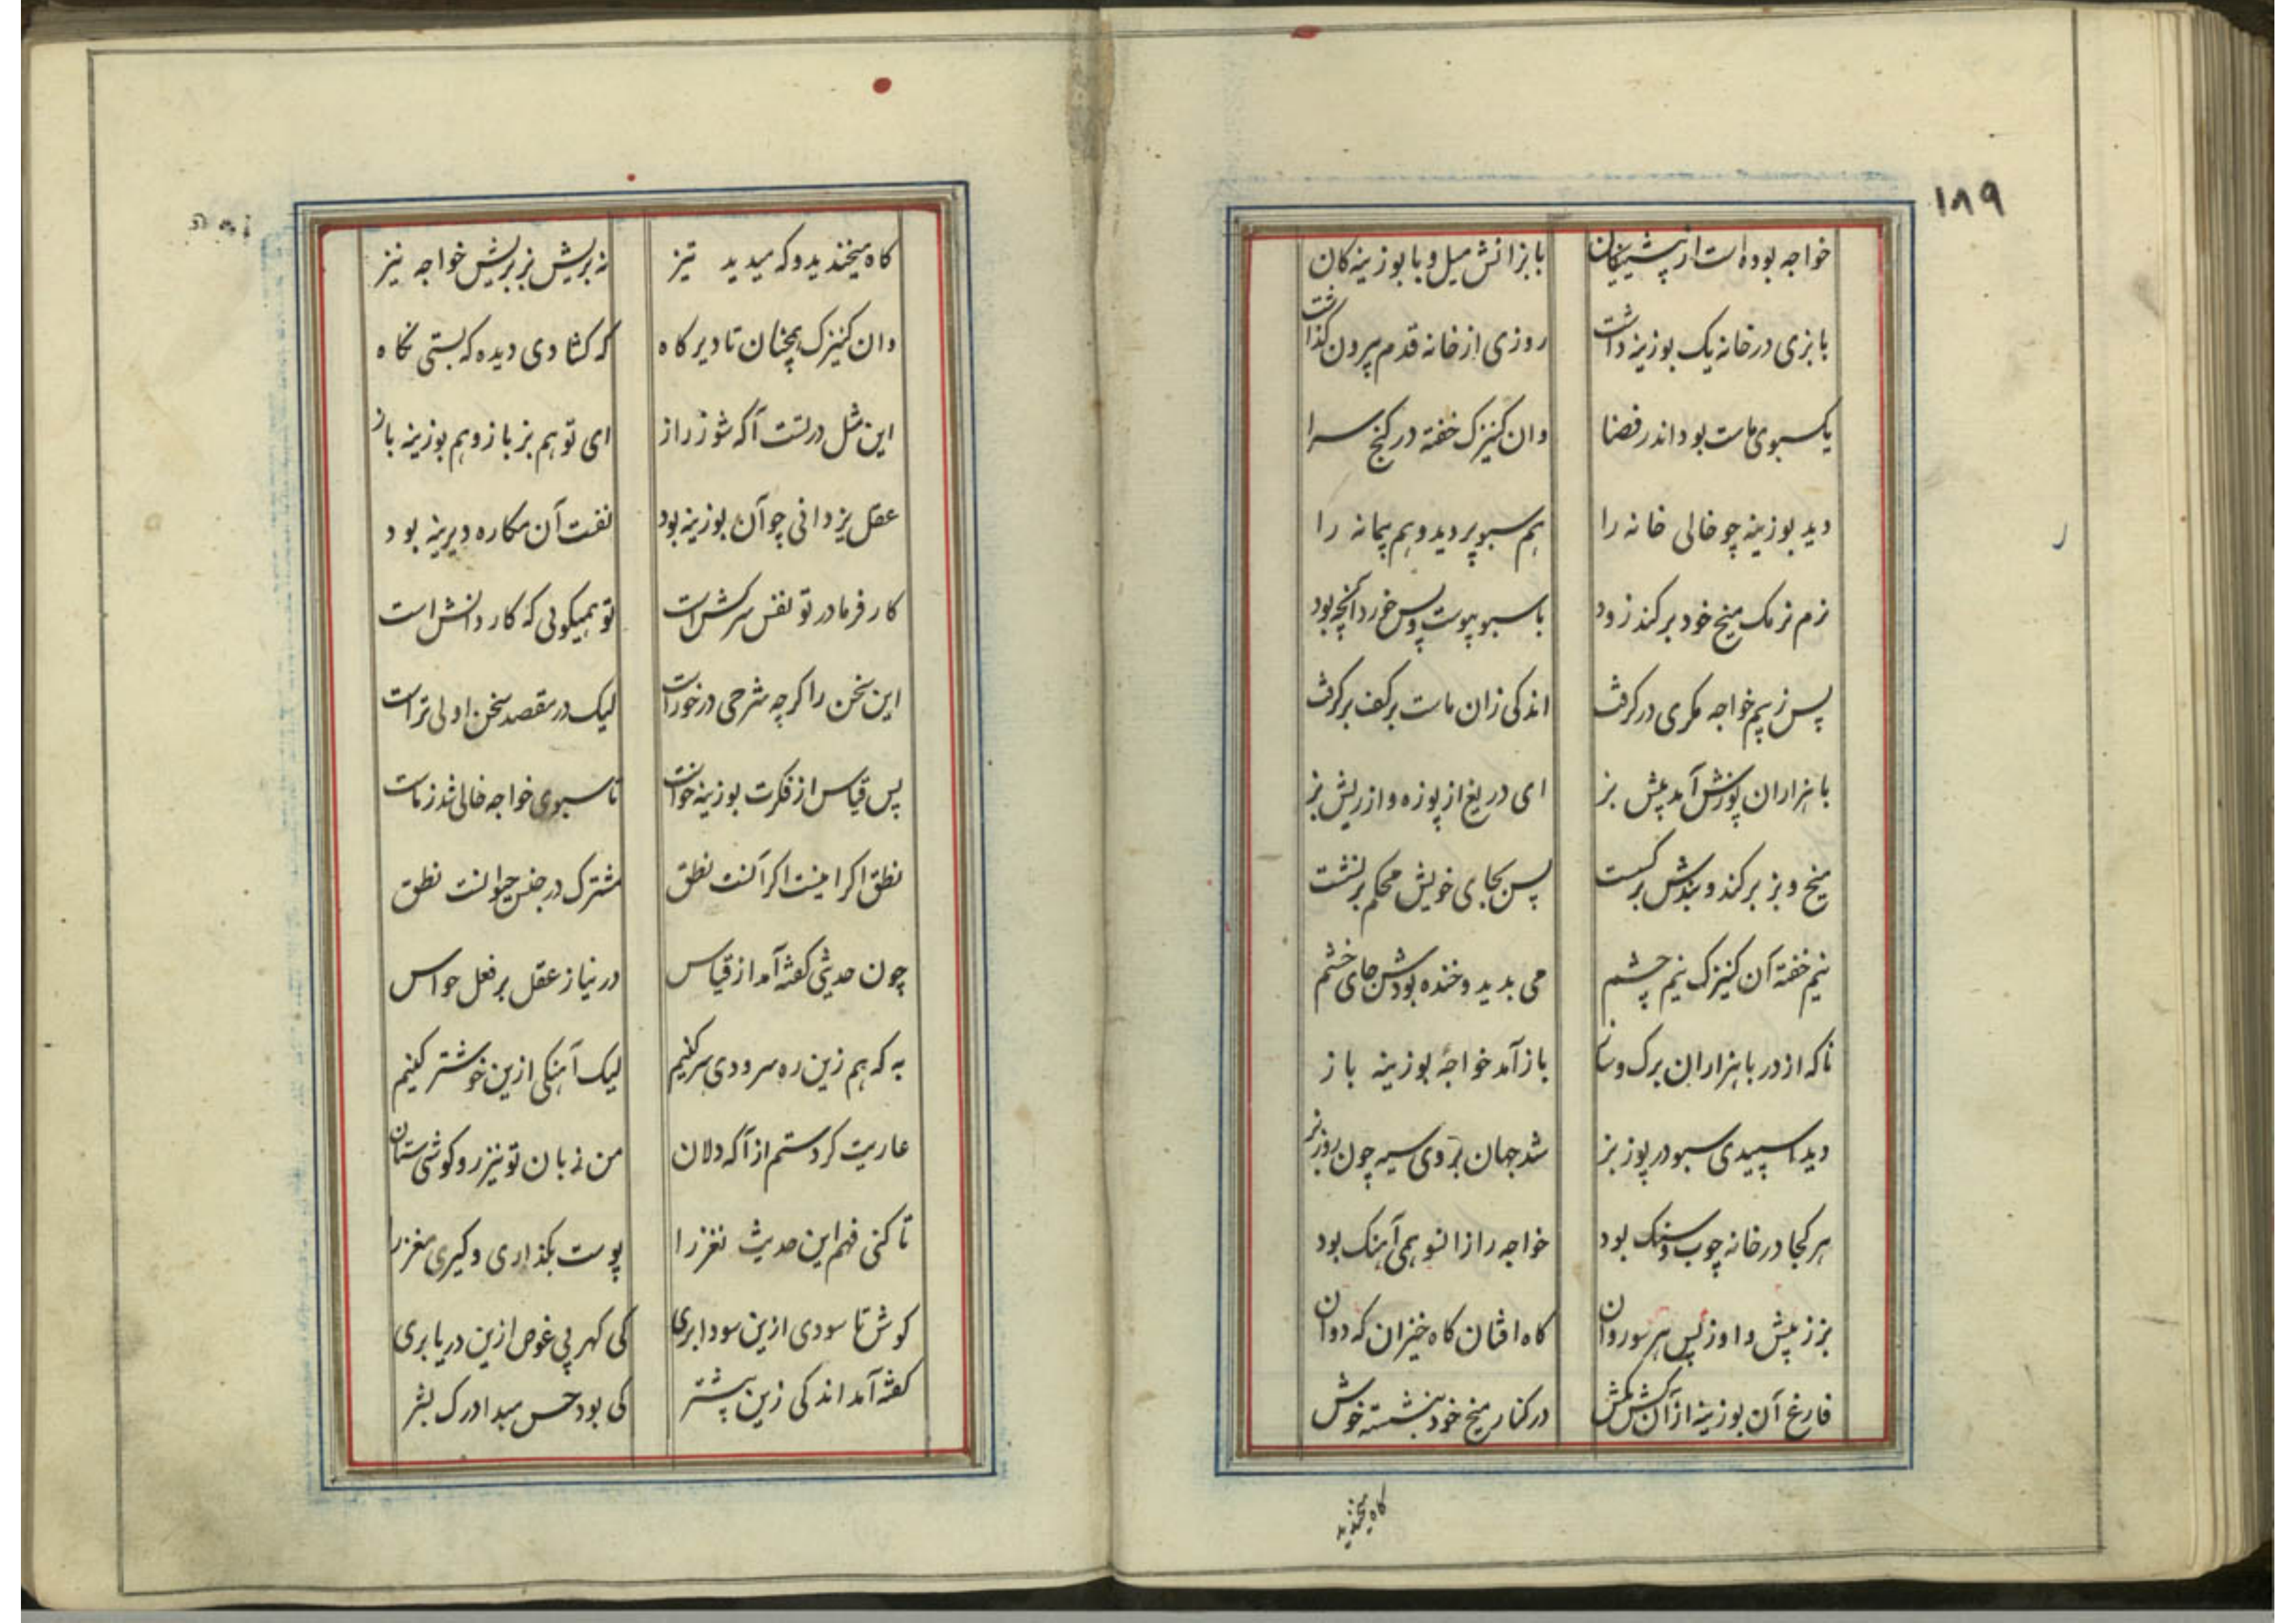 ۱۸۹
خواجه بوده است از پیشینیکان با بزانش میل و با بوزینه کان
با بزی در خانه یک بوزینه داشت روزی از خانه قدم بیرون کذاشت
یک سبوی ماست بود اندر فضا وان کنیزک خفته در کنج سرا
دید بوزینه چو خالی خانه را هم سبو پر دید و هم پیمانه را
نرم نرمک میخ خود برکند زود با سبو پیوست و پس خورد آنچه بود
پس ز بیم خواجه مکری در کرفت اندکی زان ماست بر کف بر کرفت
با هزاران پوزش آمد پیش بز ای دریغ از پوزه و از ریش بز
میخ و بز برکند و بندش بر کسست پس بجای خویش محکم برنشست
نیم خفته آن کنیزک نیم چشم می بدید و خنده بودش جای خشم
ناکه از در با هزاران برک و ساز باز آمد خواجهٔ بوزینه باز
دید اسپیدی سبو در پوز بز شد جهان بر وی سیه چون روز بز
هر کجا در خانه چوب و سنک بود خواجه را زانسو همی آهنک بود
بز ز پیش و او ز پس هر سو روان کاه افتان کاه خیزان که دوان
فارغ آن بوزینه از آن کش مکش در کنار میخ خود بنشسته خوش
کاه میخندید
کاه میخندید و که میدید تیز نه بریش بز بریش خواجه نیز
وان کنیزک همچنان تا دیر کاه که کشادی دیده که بستی نکاه
این مثل در تست آکه شو ز راز ای تو هم بز باز و هم بوزینه باز
عقل یزدانی چو آن بوزینه بود نفست آن مکاره دیرینه بود
کارفرما در تو نفس سرکش است تو همیکوئی که کار دانش است
این سخن را کرچه شرحی در خور است لیک در مقصد سخن اولی تر است
پس قیاس از فکرت بوزینه خواست تا سبوی خواجه خالی شد ز ماست
نطق اکر اینست اکر آنست نطق مشترک در جنس حیوانست نطق
چون حدیثی کفته آمد از قیاس در نیاز عقل بر فعل حواس
به که هم زین ره سرودی سر کنیم لیک آهنکی ازین خوشتر کنیم
عاریت کردستم از آکه دلان من زبان تو نیز رو کوشی ستان
تا کنی فهم این حدیث نغز را پوست بکذاری و کیری مغز را
کوش تا سودی ازین سودا بری کی کهر بی غوص ازین دریا بری
کفته آمد اندکی زین پیشتر کی بود حس مبدا درک بشر